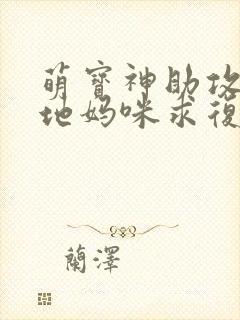 萌寶神助攻
地媽咪求復
蘭澤